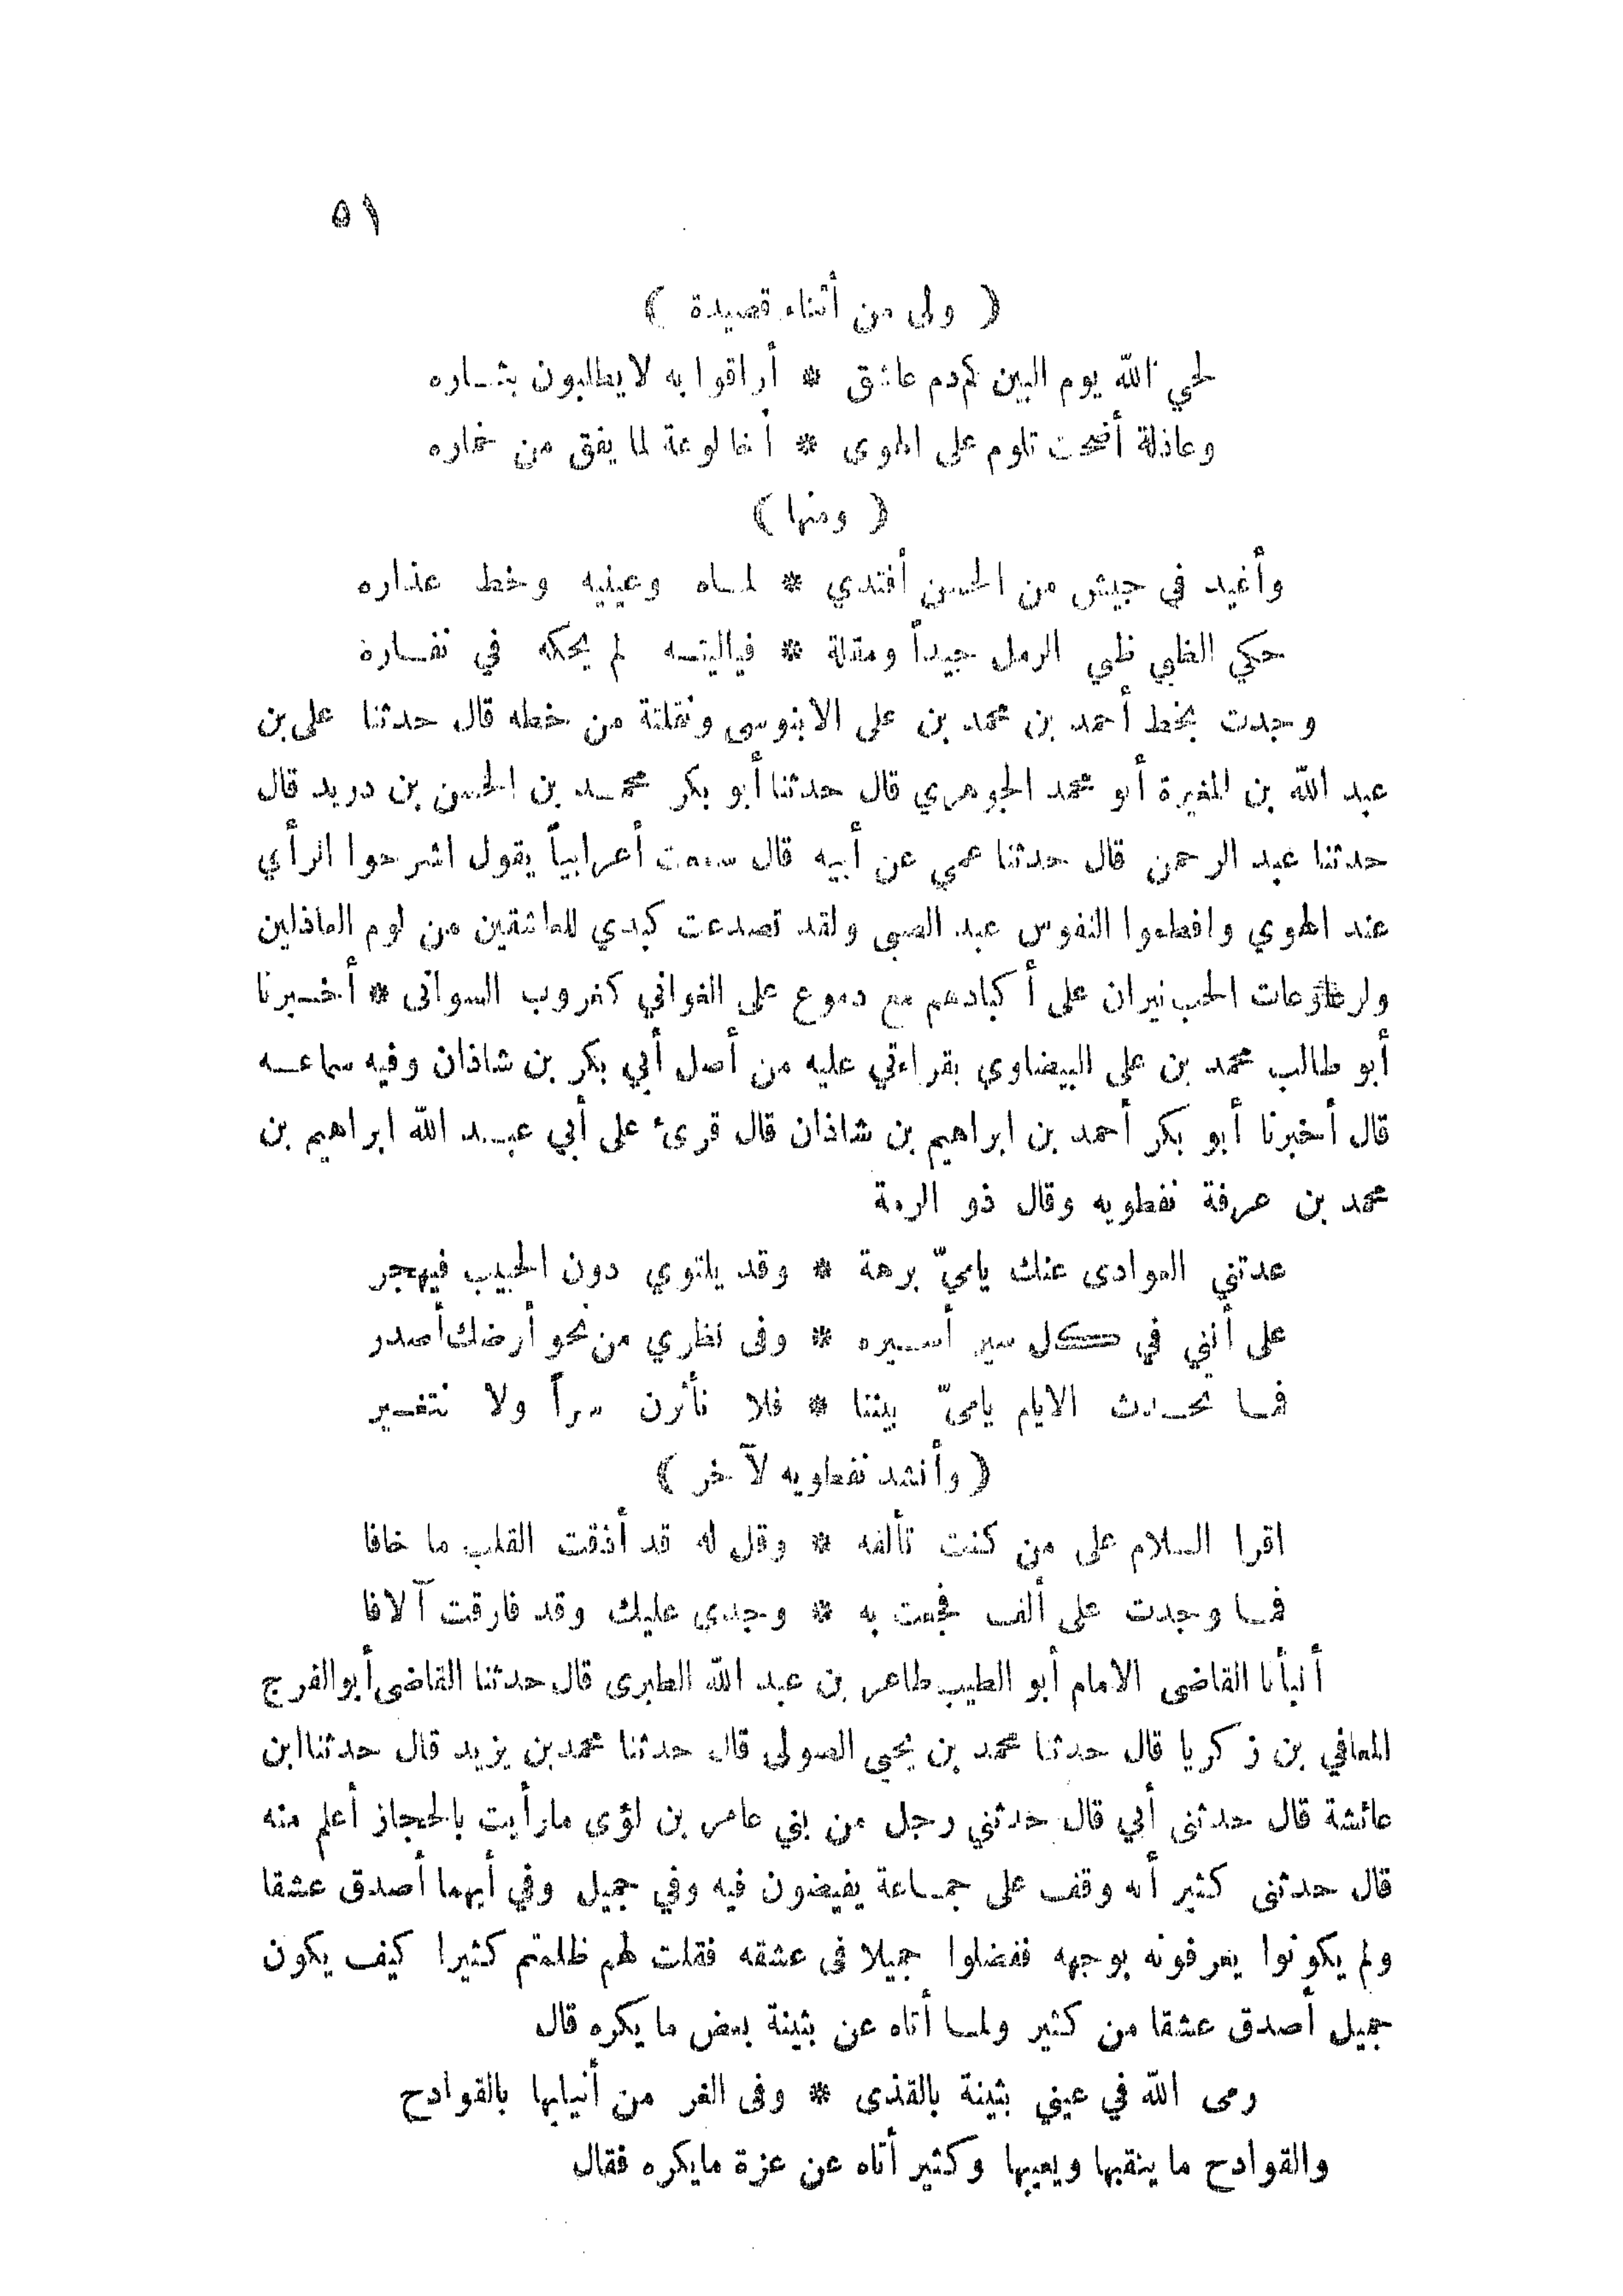 ٥١
( ولى من أثناء قصيدة )
لحي الله يوم البين كم دم عاشق * أراقوا به لا يطلبون بثاره
وعاذلة أضحت تلوم على الهوى * أخا لوعة لما يفق من خماره
( ومنها )
وأغيد في جيش من الحسن أفتدي * لماه وعينيه وخط عذاره
حكي الظبي ظبي الرمل جيداً ومقلة * فياليته لم يحكه في نفاره
وجدت بخط أحمد بن محمد بن على الابنوسى ونقلتة من خطه قال حدثنا على بن
عبد الله بن المغيرة أبو محمد الجوهري قال حدثنا أبو بكر محمد بن الحسن بن دريد قال
حدثنا عبد الرحمن قال حدثنا عمي عن أبيه قال سمعت أعرابياً يقول اشرحوا الرأي
عند الهوي وافطموا النفوس عبد الصبى ولقد تصدعت كبدي للعاشقين من لوم العاذلين
الحب نيران على أكبادهم مع دموع على الغواني كغروب السوانى * أخبرنا
أبو طالب محمد بن على البيضاوي بقراءتي عليه من أصل أبي بكر بن شاذان وفيه سماعه
قال أخبرنا أبو بكر أحمد بن ابراهيم بن شاذان قال قرئ على أبي عبد الله ابراهيم بن
محمد بن عرفة نفطويه وقال ذو الرمة
عدتني العوادى عنك ياميّ برهة * وقد يلتوي دون الحبيب فيهجر
على أنني في كل سير أسيره * وفى نظري من نحو أرضك أصدر
فما تحدث الايام يامىّ بيننا * فلا نأثرن سراً ولا نتغير
( وأنشد نفطويه لآخر )
اقرا السلام على من كنت تألفه * وقل له قد أذقت القلب ما خافا
فما وجدت على ألف فجعت به * وجدى عليك وقد فارقت آلافا
أنبأنا القاضى الامام أبو الطيب طاهر بن عبد الله الطبرى قال حدثنا القاضى أبوالفرج
المعافي بن زكريا قال حدثنا محمد بن يحيى الصولى قال حدثنا محمدبن يزيد قال حدثناابن
عائشة قال حدثنى أبي قال حدثني رجل من بني عامر بن لؤى مارأيت بالحجاز أعلم منه
قال حدثنى كثير أنه وقف على جماعة يفيضون فيه وفي جميل وفي أيهما أصدق عشقا
ولم يكونوا يعرفونه بوجهه ففضلوا جميلا فى عشقه فقلت لهم ظلمتم كثيرا كيف يكون
جميل أصدق عشقا من كثير ولما أتاه عن بثينة بعض ما يكره قال
رمى الله في عيني بثينة بالقذى * وفى الغر من أنيابها بالقوادح
والقوادح ما ينقبها ويعيبها وكثير أتاه عن عزة مايكره فقال